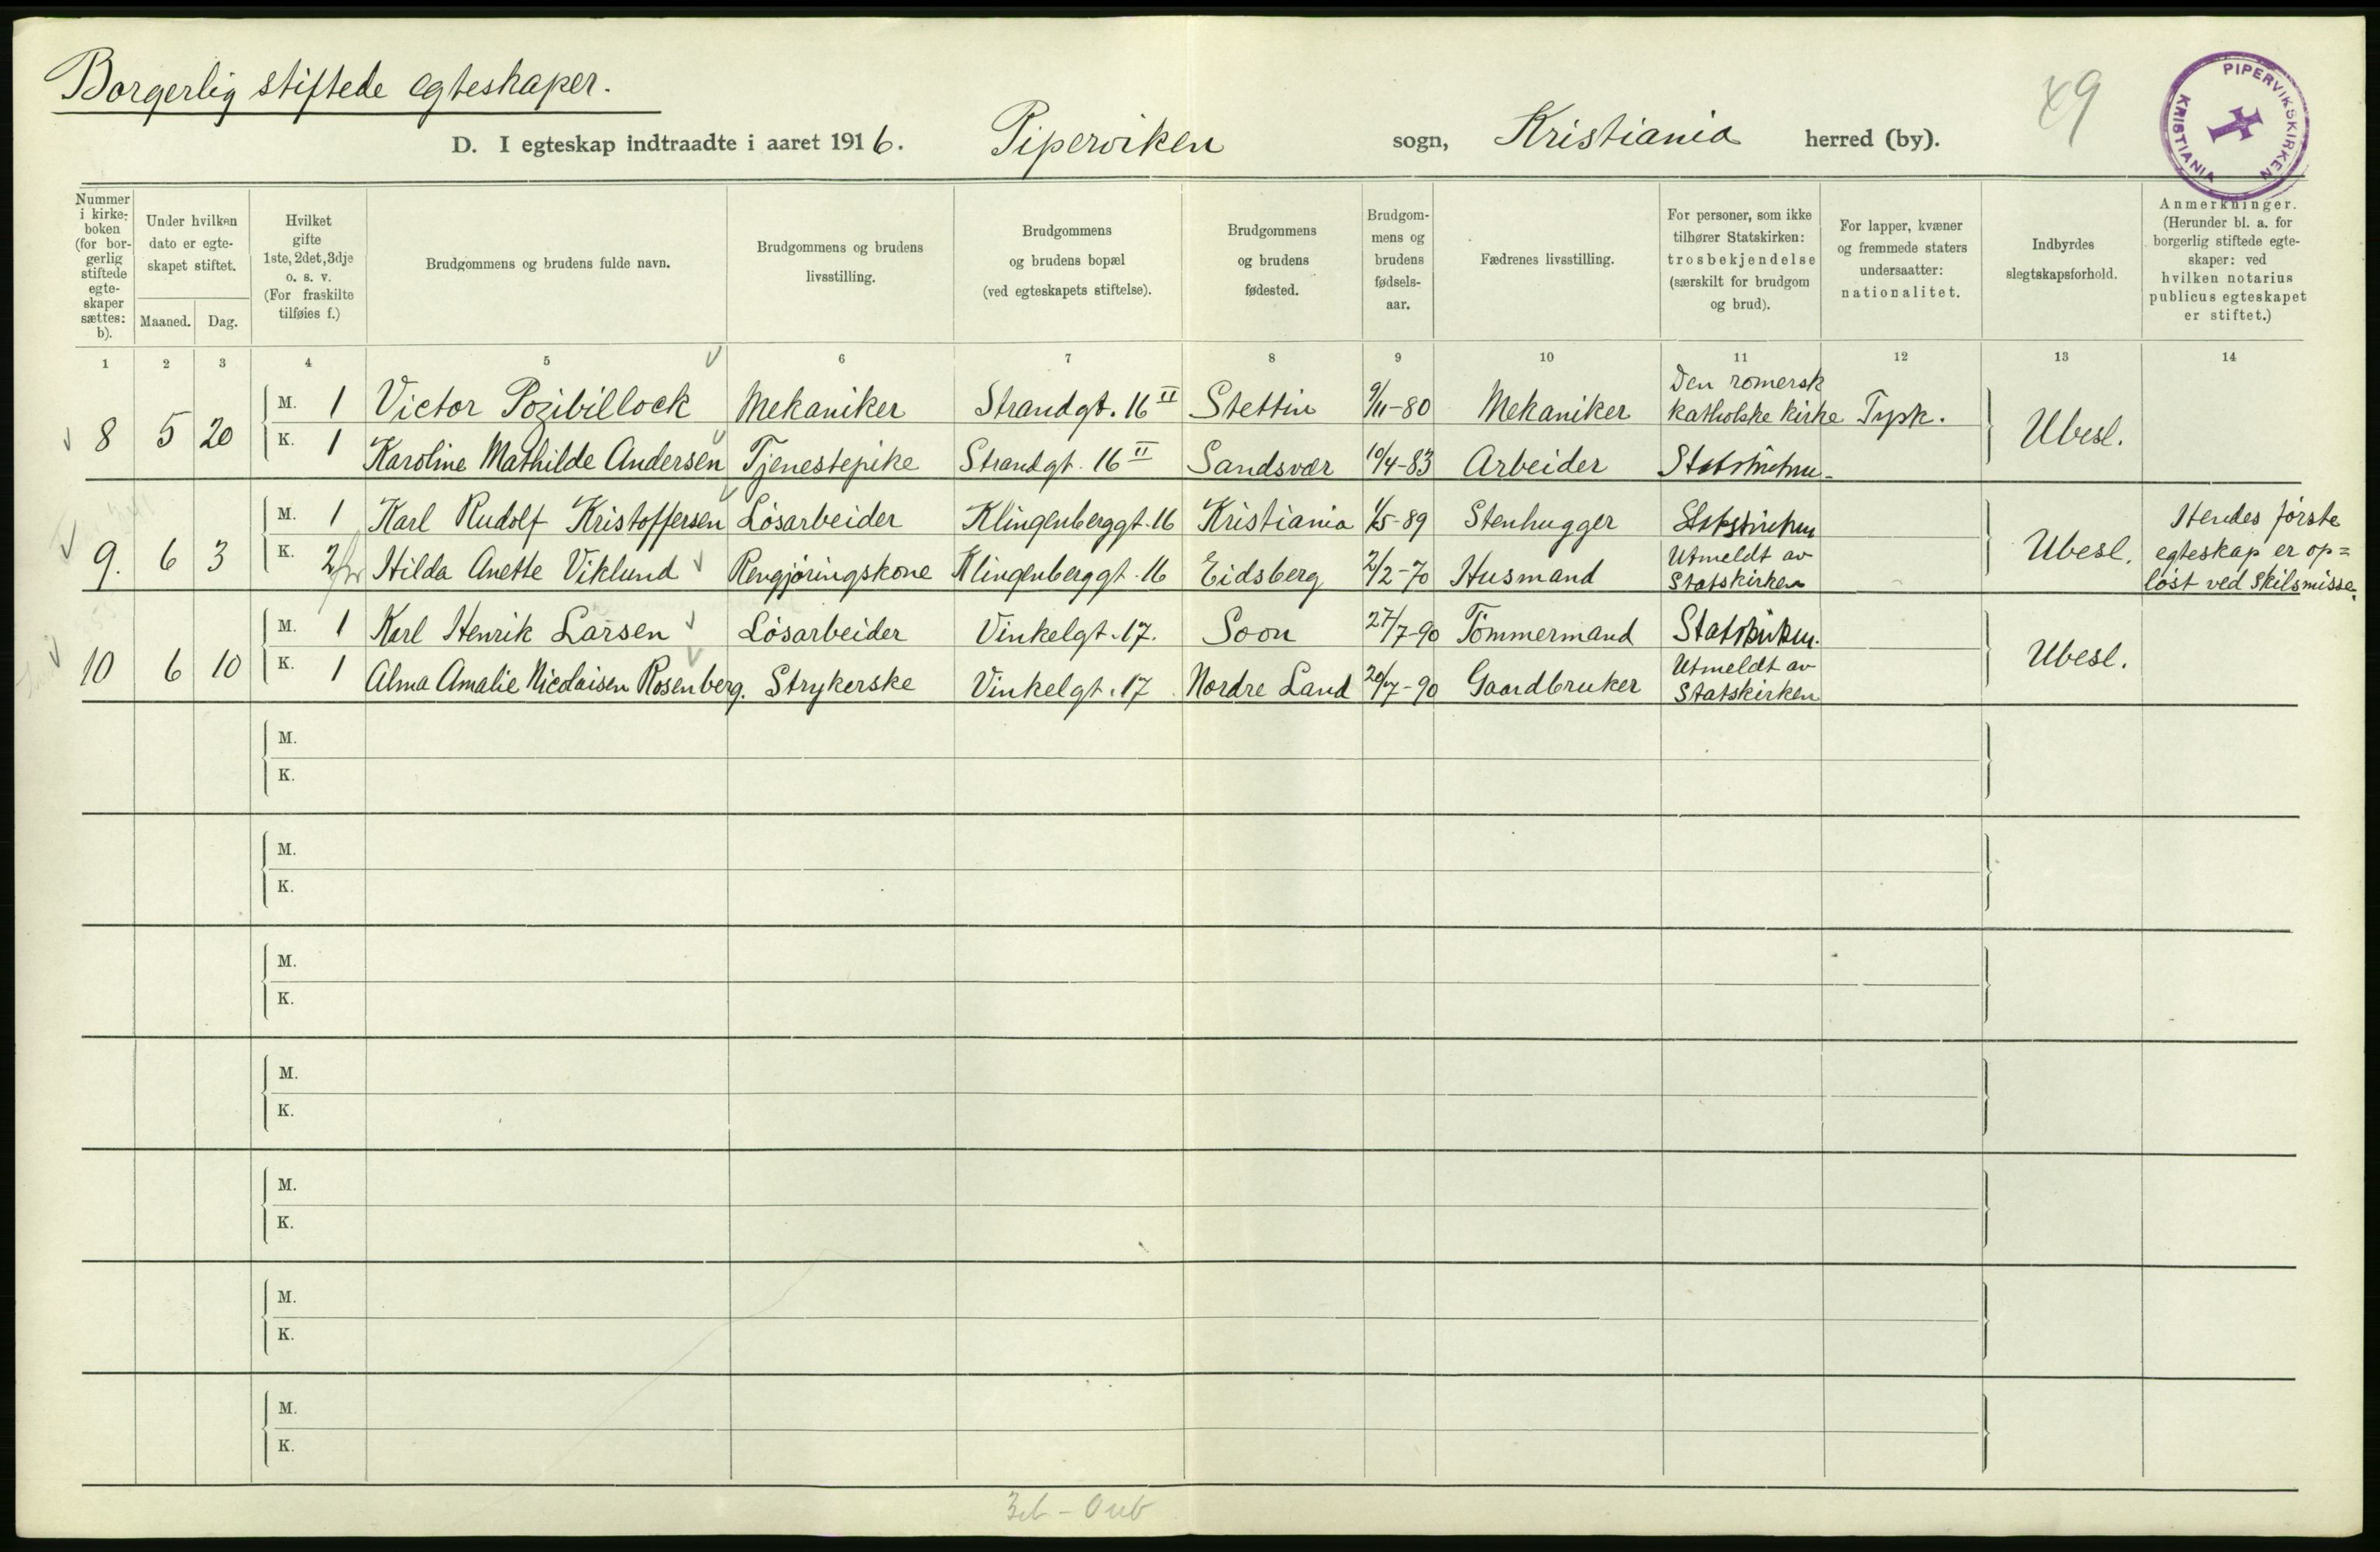 Borgerlig stiftede egteskaper.
D. I egteskap indtraadte i aaret 1916. Piperviken sogn, Kristiania herred (by).
49
PIPERVIKSKIRKEN KRISTIANIA
Nummer i kirke-boken (for bor-gerlig stiftede egte-skaper sættes: b).
Under hvilken dato er egte-skapet stiftet.
Maaned. Dag.
Hvilket gifte 1ste, 2det, 3dje o. s. v. (For fraskilte tilføies f.)
Brudgommens og brudens fulde navn.
Brudgommens og brudens livsstilling.
Brudgommens og brudens bopæl (ved egteskapets stiftelse).
Brudgommens og brudens fødested.
Brudgom-mens og brudens fødsels-aar.
Fædrenes livsstilling.
For personer, som ikke tilhører Statskirken: trosbekjendelse (særskilt for brudgom og brud).
For lapper, kvæner og fremmede staters undersaatter: nationalitet.
Indbyrdes slegtskapsforhold.
Anmerkninger. (Herunder bl. a. for borgerlig stiftede egte-skaper: ved hvilken notarius publicus egteskapet er stiftet.)
1 2 3 4 5 6 7 8 9 10 11 12 13 14
8 5 20 M. 1 Victor Pozibillock Mekaniker Strandgt. 16 II Stettin 9/11-80 Mekaniker Den romersk katholske kirke Tysk. Ubesl.
K. 1 Karoline Mathilde Andersen Tjenestepike Strandgt. 16 II Sandsvær 10/4-83 Arbeider Statskirken.
9. 6 3 M. 1 Karl Rudolf Kristoffersen Løsarbeider Klingenberggt. 16 Kristiania 1/5-89 Stenhugger Statskirken Ubesl. Hendes første egteskap er op=løst ved Skilsmisse.
K. 2 Hilda Anette Viklund Rengjøringskone Klingenberggt. 16 Eidsberg 2/2-70 Husmand Utmeldt av Statskirken
10 6 10 M. 1 Karl Henrik Larsen Løsarbeider Vinkelgt. 17. Soon 27/7-90 Tømmermand Statskirken. Ubesl.
K. 1 Alma Amalie Nicolaisen Rosenberg. Strykerske Vinkelgt. 17 Nordre Land 20/7-90 Gaardbruker Utmeldt av Statskirken
M.
K.
M.
K.
M.
K.
M.
K.
M.
K.
M.
K.
M.
K.